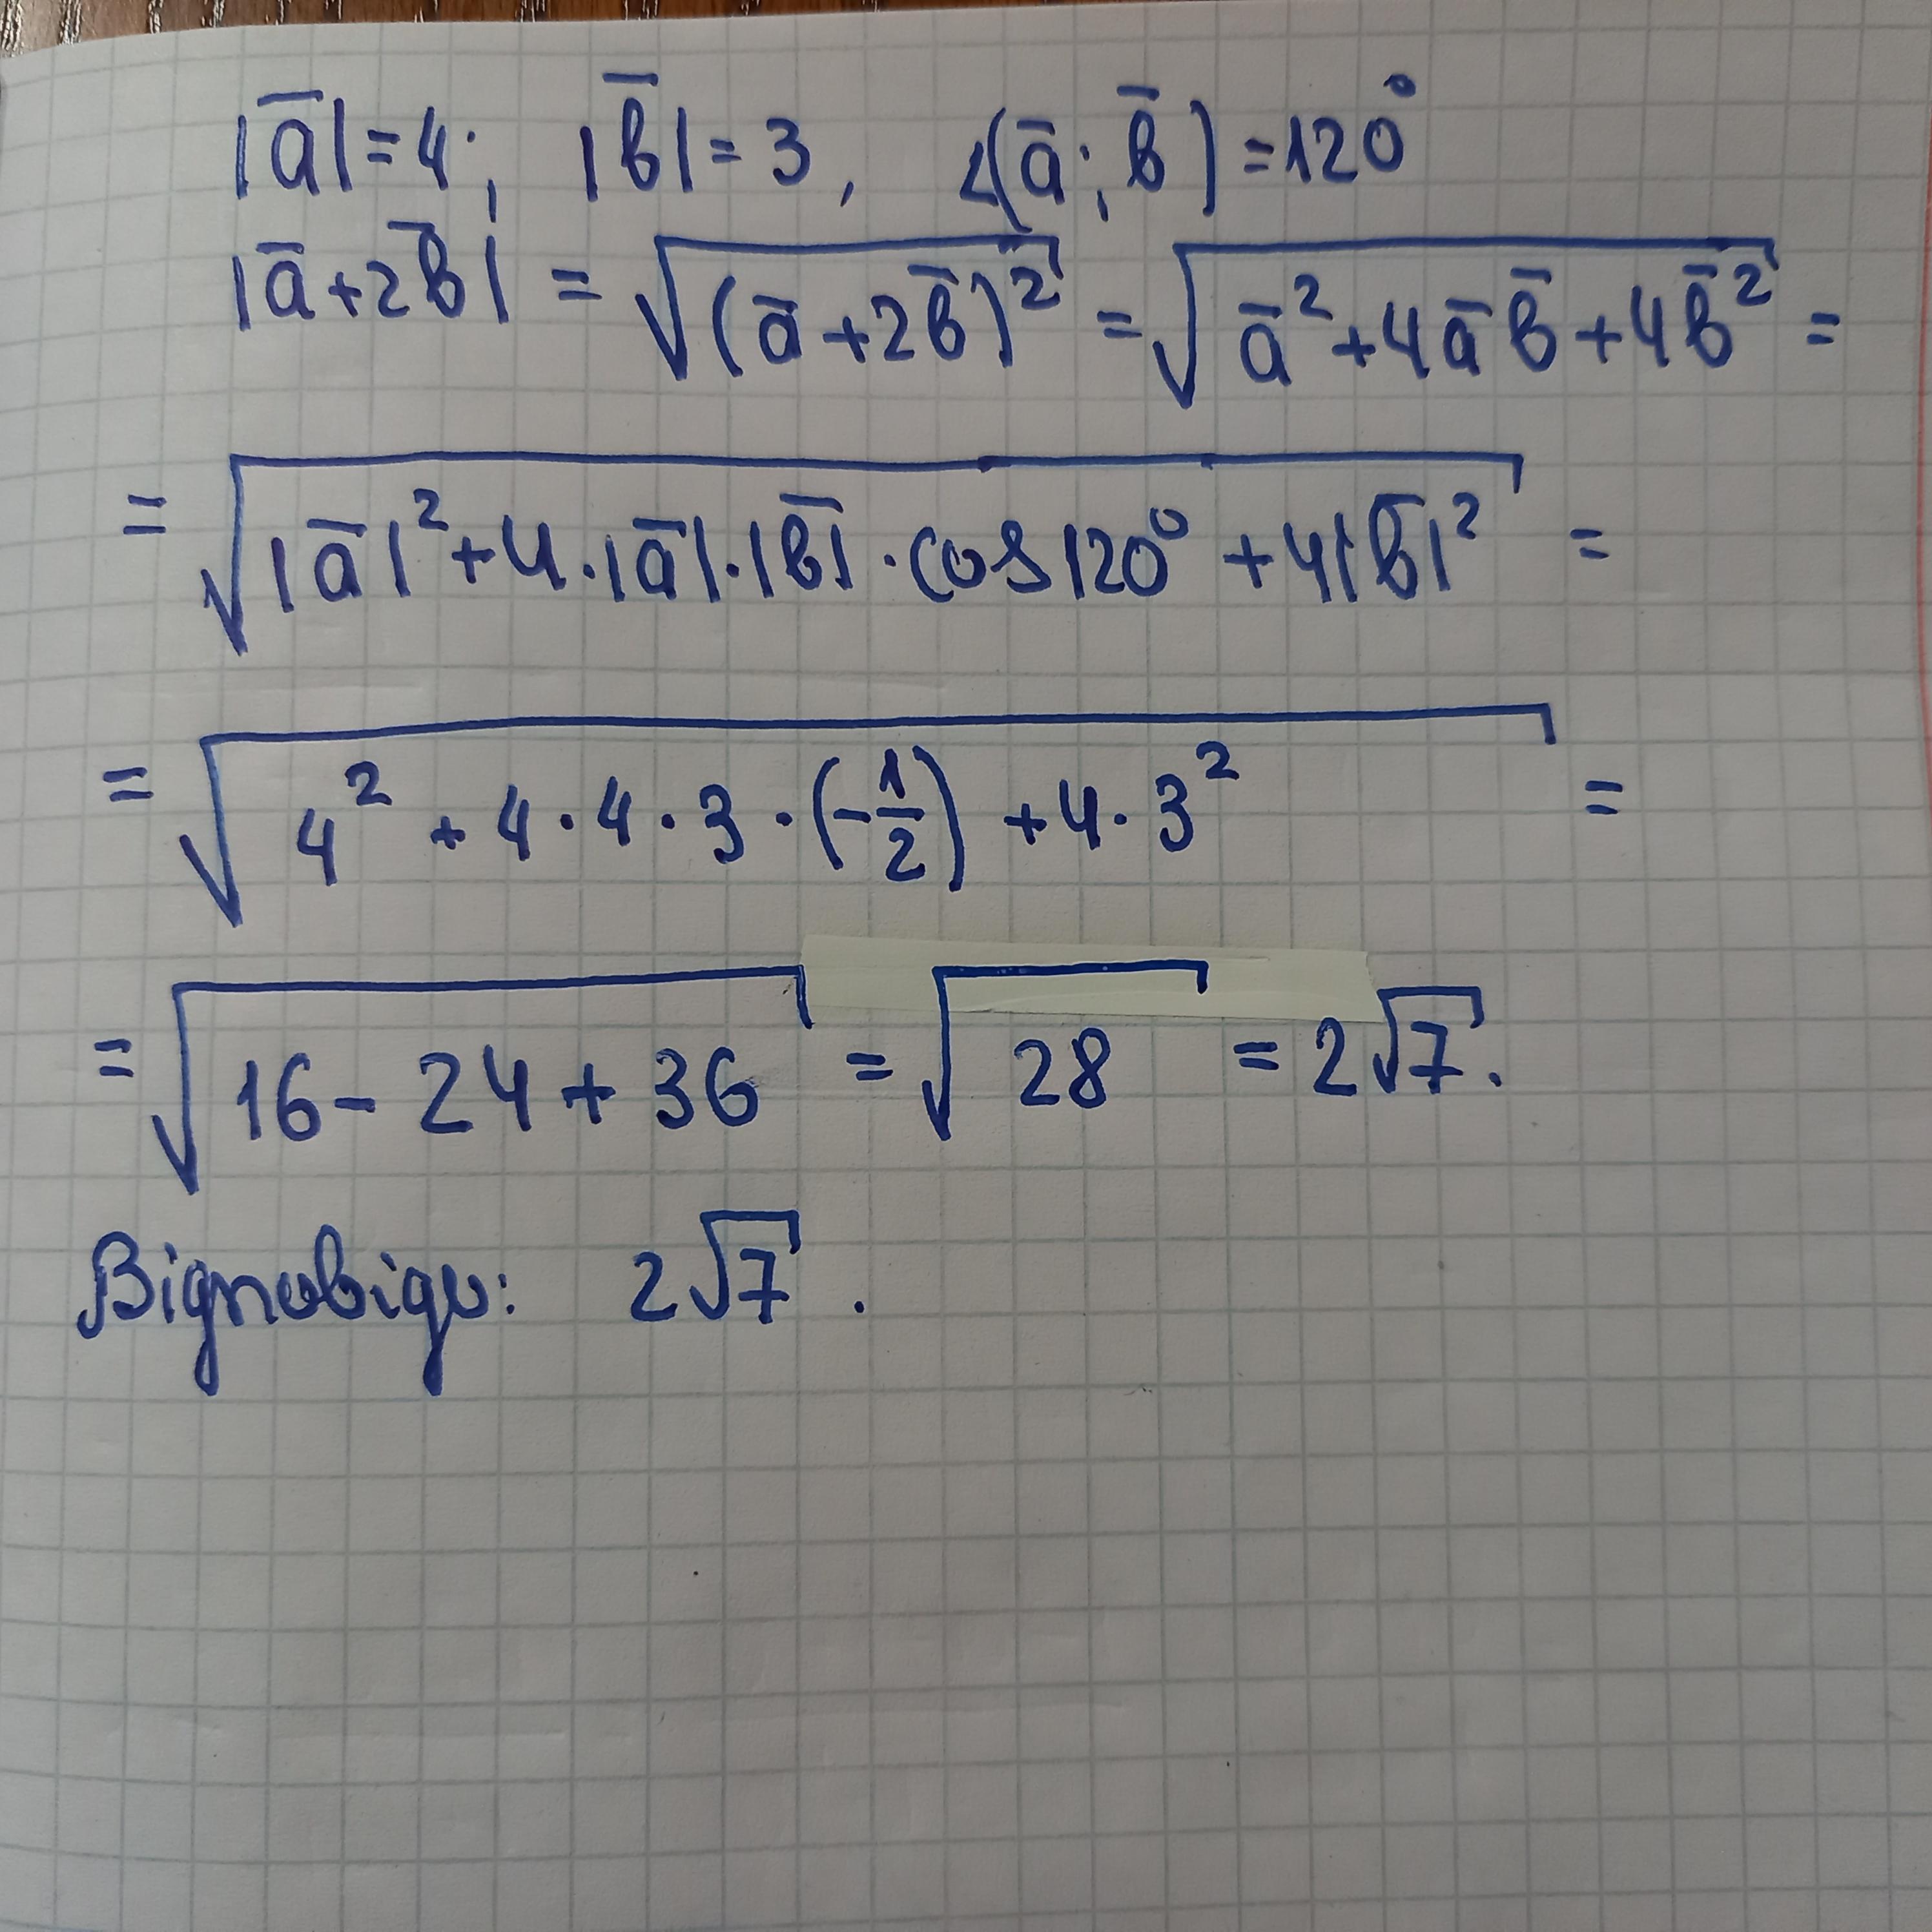 |a̅|=4; |b̅|=3, ∠(a̅; b̅)=120°
|a̅+2b̅| = √((a̅+2b̅)²) = √(a̅²+4a̅b̅+4b̅²) =
= √(|a̅|²+4·|a̅|·|b̅|·cos120°+4|b̅|²) =
= √(4²+4·4·3·(-1/2)+4·3²) =
= √(16-24+36) = √28 = 2√7.
Відповідь: 2√7.